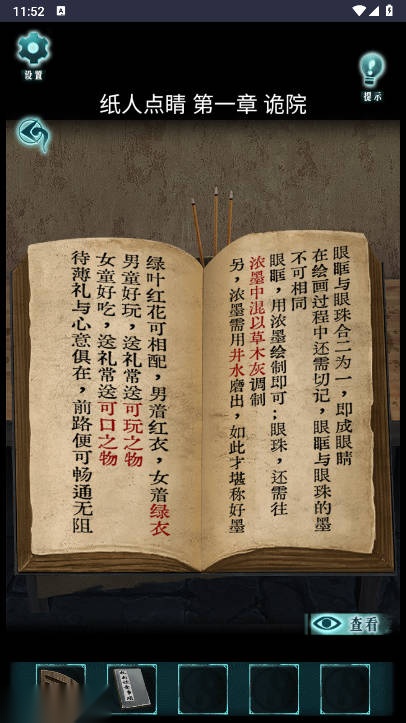 11:52
A
设置
纸人点睛 第一章 诡院
提示
眼眶与眼珠合二为一，即成眼睛
在绘画过程中还需切记，眼眶与眼珠的墨
不可相同
眼眶，用浓墨绘制即可；眼珠，还需往
浓墨中混以草木灰调制
另，浓墨需用井水磨出，如此才堪称好墨
绿叶红花可相配，男着红衣，女着绿衣
男童好玩，送礼常送可玩之物
女童好吃，送礼常送可口之物
待薄礼与心意俱在，前路便可畅通无阻
查看